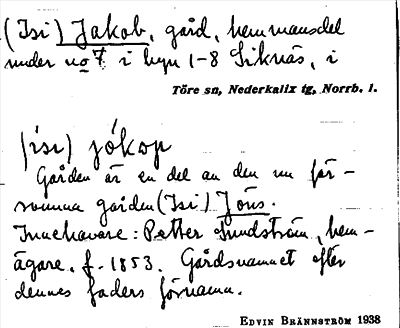 (Isi) Jakob, gård, hemmansdel
under no 7 i byn 1-8 Siknäs, i
Töre sn, Nederkalix tg, Norrb. l.
(ísi) jókop
Gården är en del av den nu för-
svunna gården (Isi) Jöns.
Innehavare: Petter Sundström, hem-
ägare, f. 1853. Gårdsnamnet efter
dennes faders förnamn.
EDVIN BRÄNNSTRÖM 1938